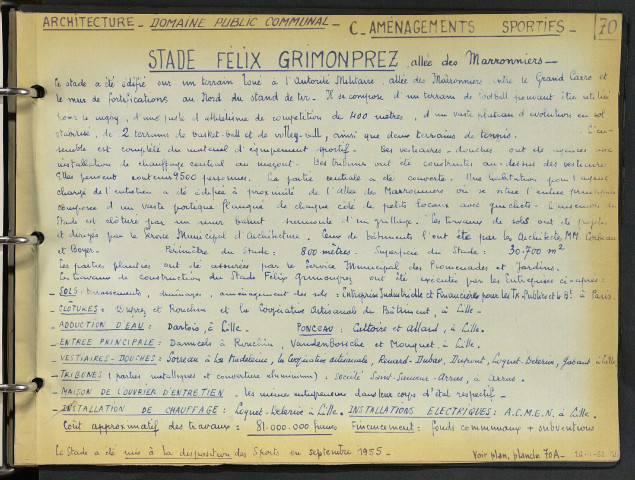 ARCHITECTURE - DOMAINE PUBLIC COMMUNAL - C - AMENAGEMENTS SPORTIFS - 70
STADE FÉLIX GRIMONPREZ, allée des Marronniers -
Ce stade a été édifié sur un terrain loué à l'Autorité Militaire, allée des Marronniers entre le Grand Carré et
le mur de fortifications au Nord du stand de tir. Il se compose d'un terrain de football pouvant être utilisé
pour le rugby, d'une piste d'athlétisme de compétition de 400 mètres, d'un vaste plateau d'évolution en sol
stabilisé, de 2 terrains de basket-ball et de volley-ball, ainsi que deux terrains de tennis. L'en-
semble est complété du matériel d'équipement sportif. Des vestiaires-douches ont été
installation de chauffage central au mazout. Des tribunes ont été construites au-dessus des vestiaires
Elles peuvent contenir 9500 personnes. La partie centrale a été couverte. Une habitation pour l'agent
chargé de l'entretien a été édifiée à proximité de l'allée des Marronniers où se situe l'entrée principale
composée d'un vaste portique flanqué de chaque côté de petits locaux avec guichets. L'ensemble du
Stade est clôturé par un muret surmonté d'un grillage. Les travaux de sols ont été
et dirigés par le Service Municipal d'Architecture. Ceux de bâtiments l'ont été par les Architectes MM.
et Boyer. Périmètre du Stade : 800 mètres. Superficie du Stade : 30.700 m²
Les parties plantées ont été assurées par le Service Municipal des Promenades et Jardins.
Les travaux de construction du Stade Félix Grimonprez ont été exécutés par les Entreprises ci-après :
- SOLS : terrassements, drainages, aménagement des sols : Entreprise Industrielle et Financière pour les Tx Publics et le Bt à Paris.
- CLÔTURES : Duprez et Ronchin et la Coopérative Artisanale du Bâtiment, à Lille -
- ADDUCTION D'EAU : Dartois, à Lille. PONCEAU : et Allard, à Lille.
- ENTREE PRINCIPALE : à Ronchin, Vandenbossche et Monquet, à Lille.
- VESTIAIRES-DOUCHES : à La Madeleine, la Coopérative Artisanale, Renard-Dubar, Dupont, Loquet-Delerive, à Lille
- TRIBUNES (parties métalliques et couverture aluminium) : Société Saint-Sauveur-Arras, à Arras.
- MAISON DE L'OUVRIER D'ENTRETIEN. les mêmes entrepreneurs dans leur corps d'état respectif -
- INSTALLATION DE CHAUFFAGE : Loquet-Delerive à Lille. INSTALLATIONS ELECTRIQUES : A.C.M.E.N. à Lille.
Coût approximatif des travaux : 81.000.000 francs Financement : fonds communaux + subventions
Le Stade a été mis à la disposition des Sports en septembre 1955 - Voir plan, planche 70A -